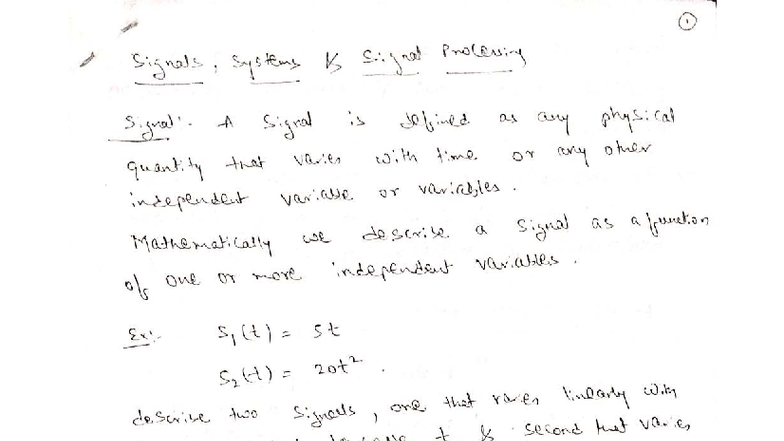 1
Signals, Systems & Signal Processing
Signal:- A Signal is defined as any physical
quantity that varies with time or any other
independent variable or variables.
Mathematically we describe a signal as a function
of one or more independent variables.
Ex:- S₁(t) = 5t
S₂(t) = 20t².
describe two signals, one that varies linearly with
t & second that varies